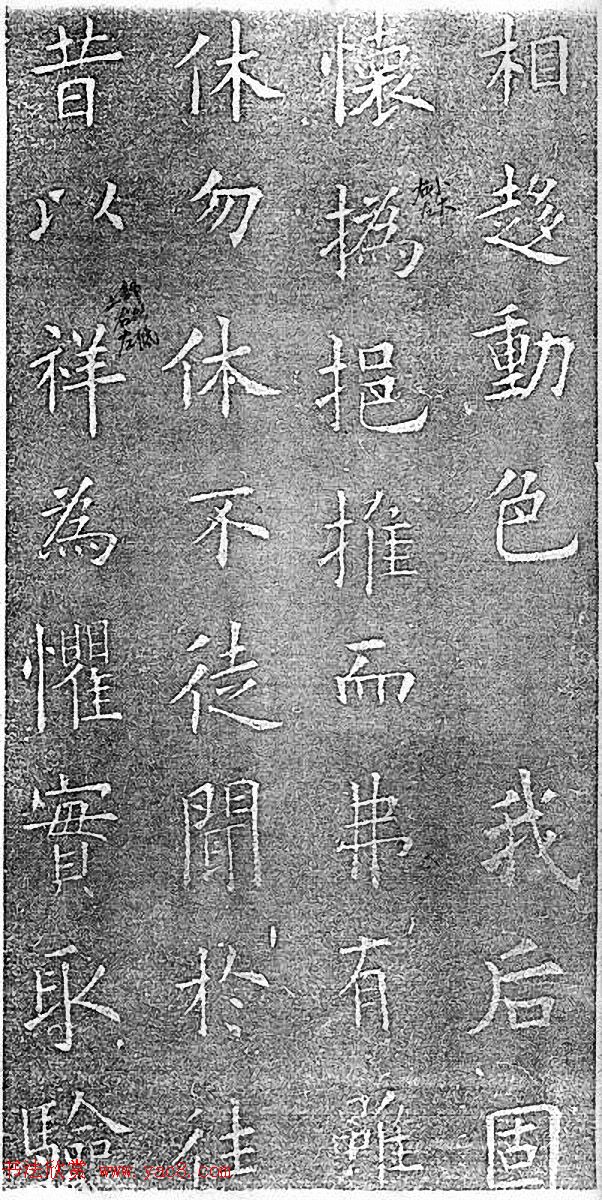 相趍動色 我后固
懷撝挹推而弗有雖
休勿休不徒聞於往
昔以祥為懼實取驗
书法欣赏 www.yac8.com